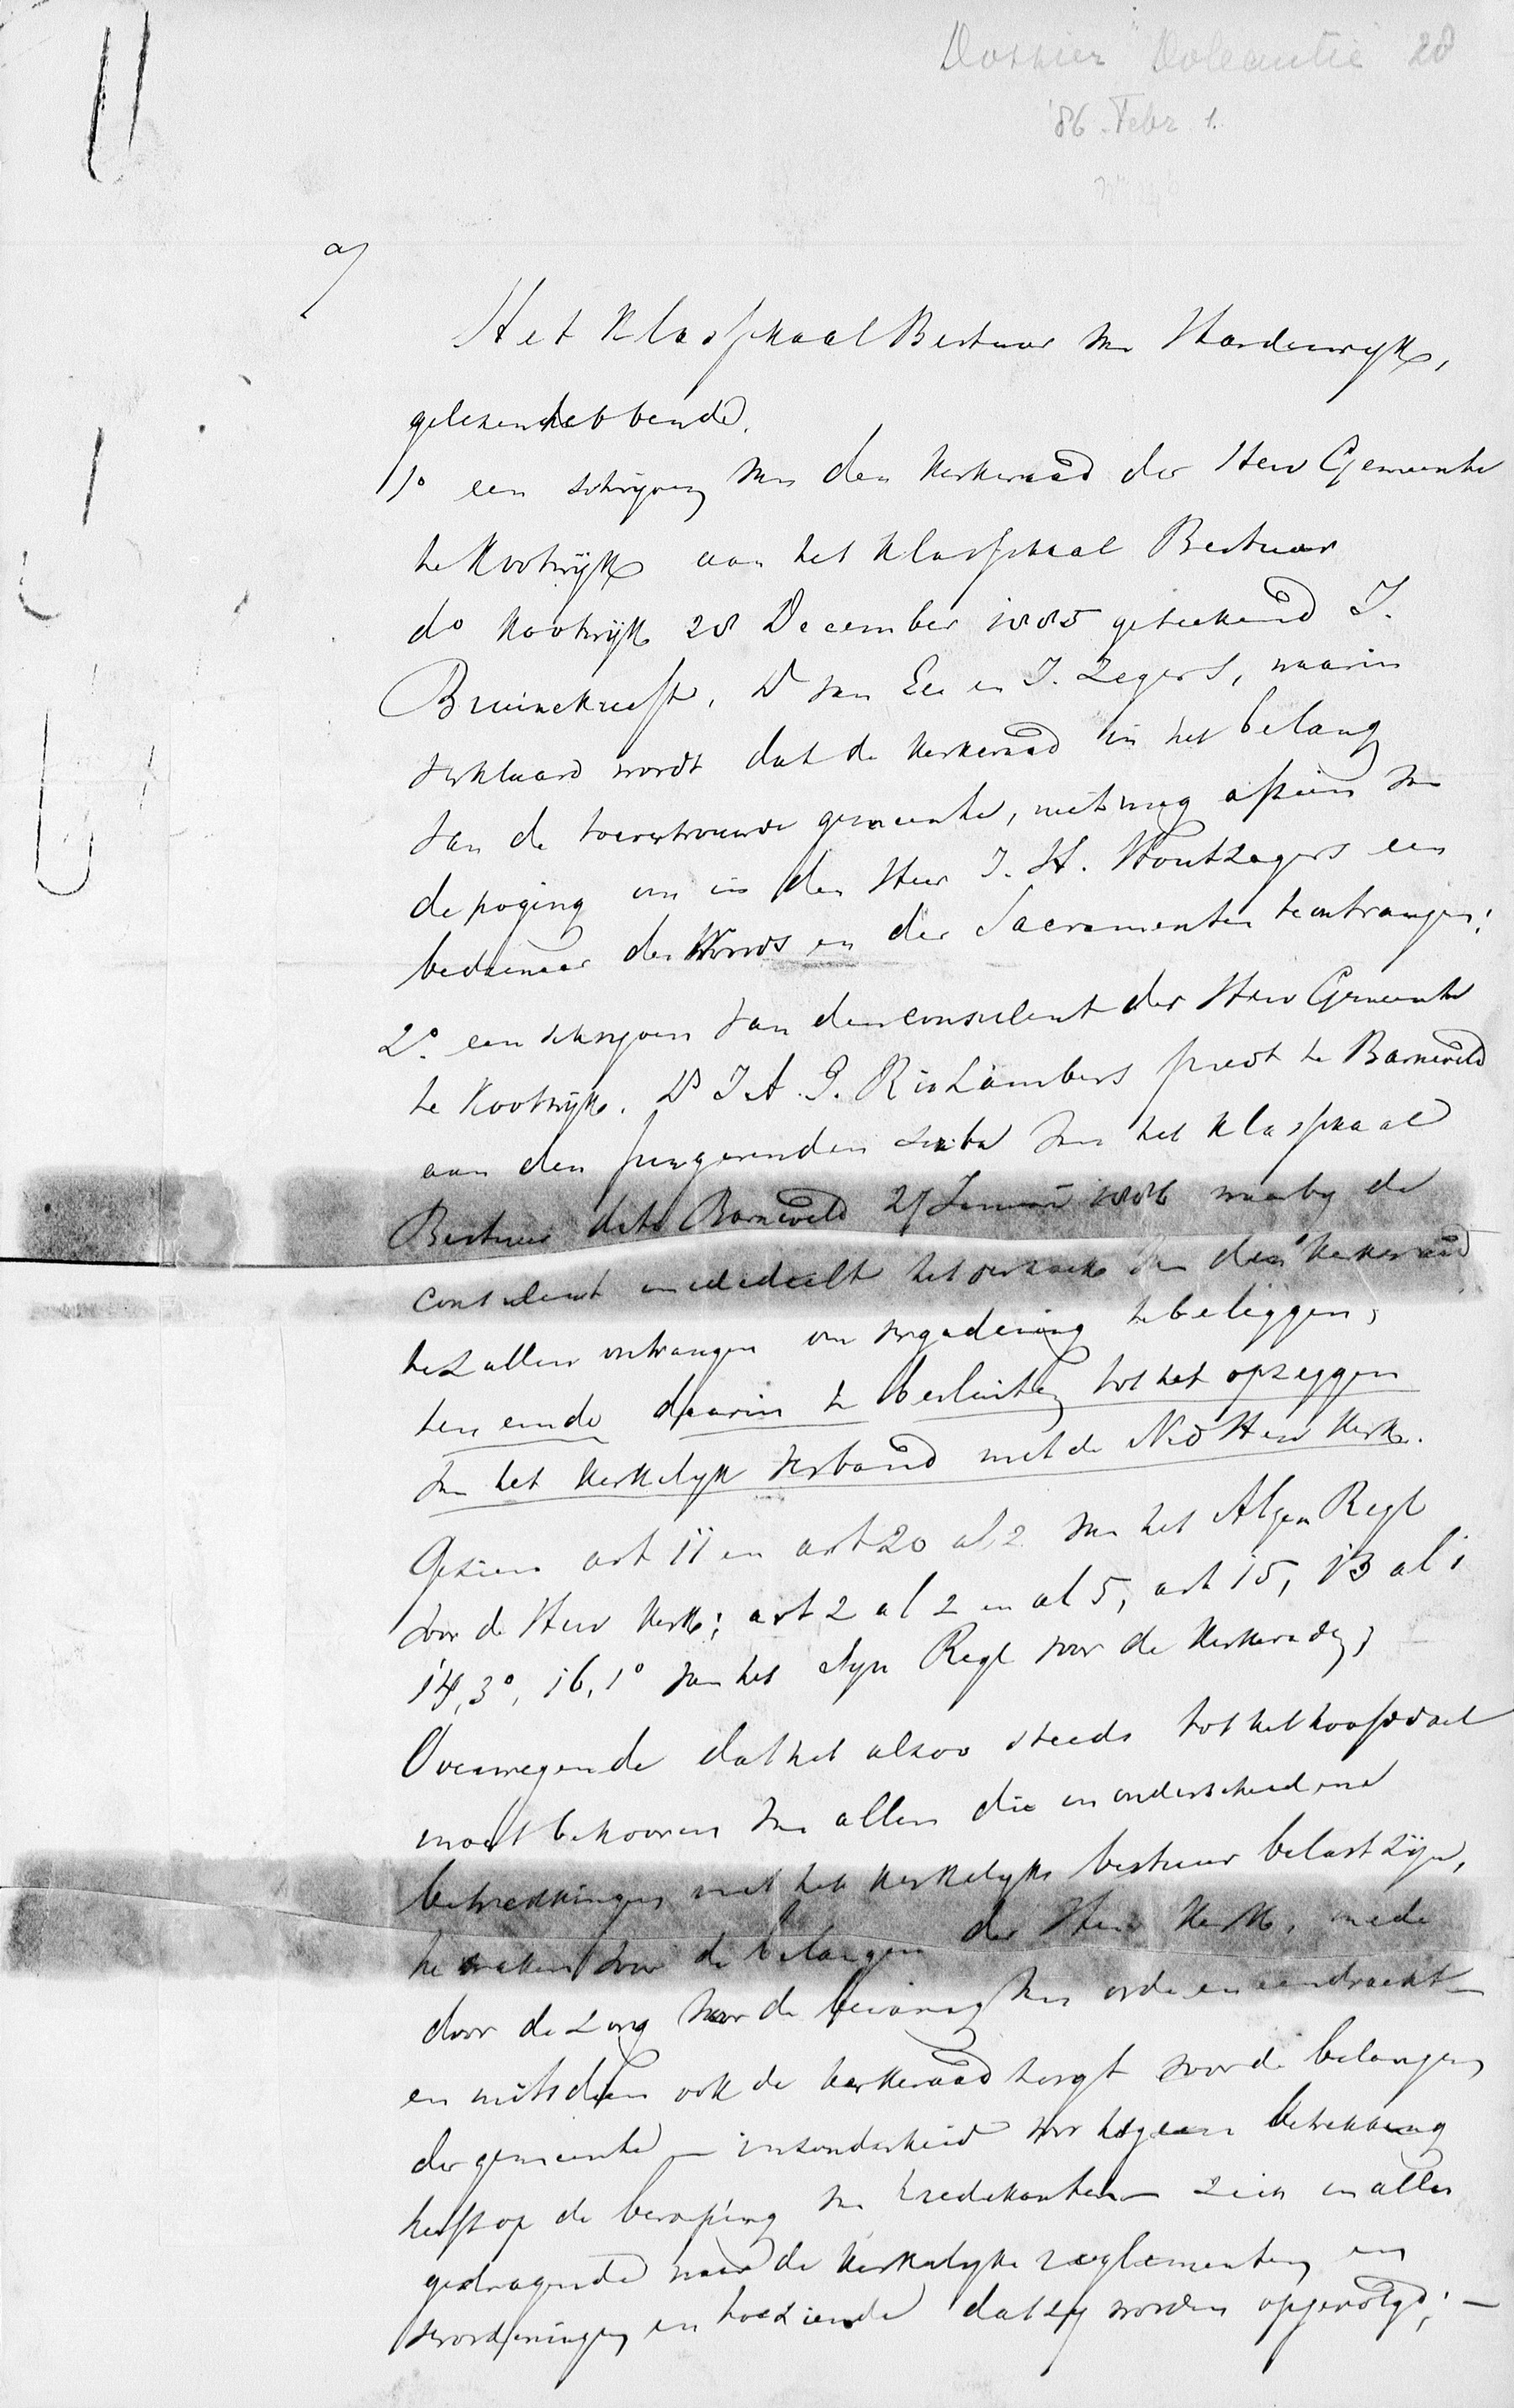 Dossier Doleantie 28
'86. Febr 1.
a/
Het Klassikaal Bestuur van Harderwyk,
gelezen hebbende,
1o een schryven van den Kerkeraad der Herv Gemeente
te Kootwijk aan het Klassikaal Bestuur
do Kootwijk 28 December 1885 geteekend J.
Bruinekreeft, W van Ee en J. Zegers, waarin
verklaard wordt dat de Kerkeraad in het belang
van de toevertrouwde gemeente, niet mag afzien van
de poging om in den Heer J. H. Houtzagers een
bedienaar des Woords en der Sacramenten te ontvangen;
2o. een schryven van den consulent der Herv Gemeente
te Kootwijk. Ds J. A. G. Ris Lambers pred t te Barneveld
aan den fungerenden scriba van het Klassikaal
Bestuur dato Barneveld 27 Januari 1886 waarby de
consulent mededeelt het verzoek van den Kerkeraad
te zullen ontvangen om vergadering te beleggen,
ten einde daarin te besluiten tot het opzeggen
van het Kerkelyk verband met de Ned Herv Kerk.
Gezien art 11 en art 20 al. 2 van het Algem Regl
voor de Herv Kerk; art 2 al 2 en al 5, art 15, 13 al 1
14, 3o, 16, 1o van het Syn Regl voor de Kerkeraden;
Overwegende dat het alzoo steeds tot het hoofddoel
moet behooren van allen die in onderscheidene
betrekkingen met het Kerkelyke bestuur belast zijn,
te waken voor de belangen der Herv Kerk, mede
door de zorg voor de bewaring van orde en eendracht –
en mitsdien ook de kerkeraad zorgt voor de belangen
der gemeente – inzonderheid voor hetgeen betrekking
heeft op de beroeping van predikanten – zich in alles
gedragende naar de Kerkelyke reglementen en
verordeningen en toeziende dat zy worden opgevolgd; –